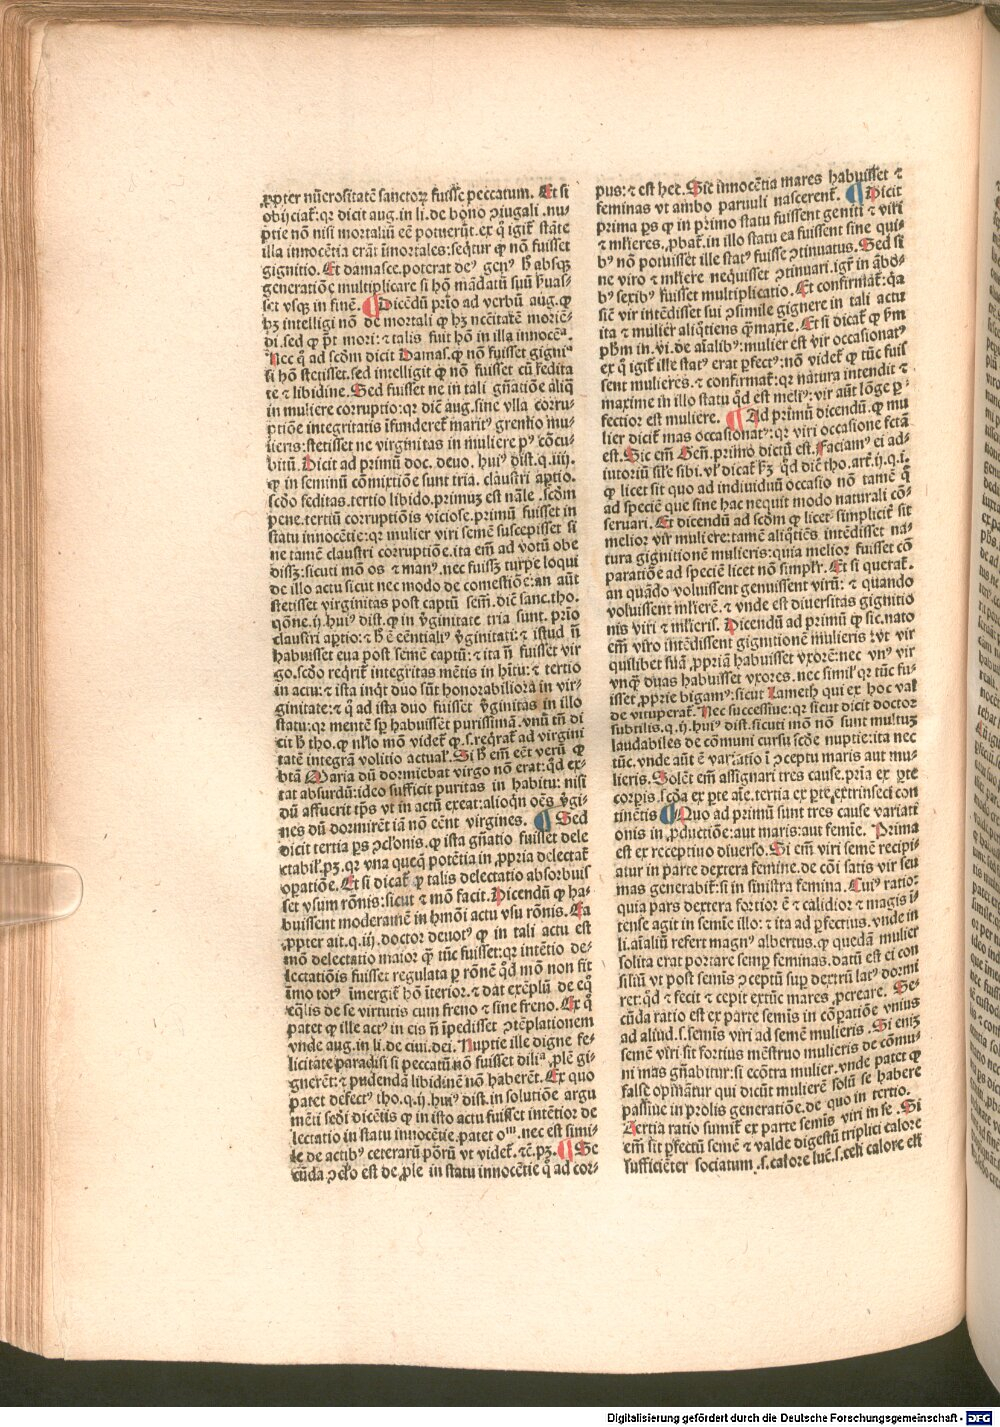 ꝓpter nūerositatē sanctoꝝ fuisse peccatum. Et si
obijciat᷑: qꝛ dicit aug. in li. de bono ꝯiugali. nu-
ptie nō nisi mortaliū eē potuerūt. ex qͦ igit᷑ stāte
illa innocētia erāt īmortales: seqt᷑ur ꝙ nō fuisset
gignitio. Et damasce. poterat deꝰ genꝰ hͦ absqꝫ
generatiōe multiplicare si hō mādatū suū ẜuas-
set vsqꝫ in finē. ¶ Dicēdū prīo ad verbū aug. ꝙ
hꝫ intelligi nō de mortali ꝙ hꝫ necītatē moriē-
di. sed ꝙ pt̄ mori: ⁊ talis fuit hō in illa innocēᵃ.
Nec qͦ ad scdm dicit Damas. ꝙ nō fuisset gigniᵒ
si hō stetisset. sed intelligit ꝙ nō fuisset cū fedita
te ⁊ libidine. Sed fuisset ne in tali gn̄atiōe aliq̄
in muliere corruptio: qꝛ diē aug. sine vlla corru-
ptiōe integritatis īfunderet᷑ maritꝰ gremio mu-
lieris: stetisset ne virginitas in muliere pꝰ cōcu-
bitū. Dicit ad primū doc. deuo. huiꝰ dist. q. iiij.
ꝙ in seminū cōmixtiōe sunt tria. claustri aptio.
scdo feditas. tertio libido. primuꝫ est nāle. scdm
pene. tertiū corruptiōis viciose. primū fuisset in
statu innocētie: qꝛ mulier viri semē suscepisset si
ne tamē claustri corruptiōe. ita em̄ ad votū obe
disꝫ: sicuti mō os ⁊ manꝰ. nec fuissꝫ turpe loqui
de illo actu sicut nec modo de comestiōe: an aūt
stetisset virginitas post captū sem̄. diē sanc. tho.
qōne. ij. huiꝰ dist. ꝙ in v̄ginitate tria sunt. prīo
claustri aptio: ⁊ hͦ ē eēntialiꝰ v̄ginitati: ⁊ istud n̄
habuisset eua post semē captū: ⁊ ita n̄ fuisset vir
go. scdo reqrit᷑ integritas mētis in hītu: ⁊ tertio
in actu: ⁊ ista inqt duo sūt honorabiliora in vir-
ginitate: ⁊ qͦ ad ista duo fuisset v̄ginitas in illo
statu: qꝛ mentē sp habuisset purissimā. vnū tn̄ di
cit b̄ tho. ꝙ nllo mō videt᷑ ꝙ. s. reqrat᷑ ad virgini
tatē integrā volitio actualꝭ. Si hͦ em̄ eēt verū ꝙ
btā Maria dū dormiebat virgo nō erat: qd̄ ex-
tat absurdū: ideo sufficit puritas in habitu: nisi
dū affuerit tps vt in actū exeat: alioqn oēs v̄gi-
nes dū dormirēt iā nō eēnt virgines. ¶ Sed
dicit tertia ps ꝯclonis. ꝙ ista gn̄atio fuisset dele
ctabilꝭ. pꝫ. qꝛ vna queqꝫ potētia in ꝓpria delectat᷑
opatiōe. Et si dicat᷑ ꝙ talis delectatio absorbuis
set vsum rōnis: sicut ⁊ mō facit. Dicendū ꝙ ha-
buissent moderamē in hmōi actu vsu rōnis. Ea
ꝓpter ait. q. iij. doctor deuotꝰ ꝙ in tali actu est
mō delectatio maior ꝙ tūc fuisset: qꝛ intētio de-
lectatiōis fuisset regulata p rōnē qd̄ mō non fit
īmo totꝰ īmergit᷑ hō īterior. ⁊ dat exēplū de eq̄
eqͣlis de se virtutis cum freno ⁊ sine freno. Ex qͦ
patet ꝙ ille actꝰ in eis n̄ īpedisset ꝯtēplationem
vnde aug. in li. de ciui. dei. Nuptie ille digne fe-
licitate paradisi si peccatū nō fuisset diliᵃ ꝓlē gi-
gnerēt: ⁊ pudendā libidinē nō haberēt. Ex quo
patet defectꝰ tho. q. ij. huiꝰ dist. in solutiōe argu
mēti secdi dicētis ꝙ in isto actu fuisset intētior de
lectatio in statu innocētie. patet oᵐ. nec est simi-
le de actibꝰ ceterarū potꝝ̄ vt videt᷑. ⁊c̄. pꝫ. ¶ Se
cūda ꝯclo est de ꝓle in statu innocētie qͦ ad cor-
pus: ⁊ est hec. Sic innocētia mares habuisset ⁊
feminas vt ambo paruuli nascerent᷑. ¶ Dicit
prima ps ꝙ in primo statu fuissent geniti ⁊ viri
⁊ ml̓ieres. ꝓbat᷑. in illo statu ea fuissent sine qui-
bꝰ nō potuisset ille statꝰ fuisse ꝯtinuatus. Sed si
ne viro ⁊ ml̓iere nequisset ꝯtinuari. igr̄ in ābo-
bꝰ sexibꝰ fuisset multiplicatio. Et confirmat᷑: qa
siē vir intēdisset sui ꝯsimile gignere in tali actu
ita ⁊ mulier aliqͣtiens qͣmaxie. Et si dicat᷑ ꝙ pm̄
phm in. vi. de aīalibꝰ: mulier est vir occasionatꝰ
ex qͦ igit᷑ ille statꝰ erat ꝑfectꝰ: nō videt᷑ ꝙ tūc fuis
sent mulieres. ⁊ confirmat᷑: qꝛ natura intendit ⁊
maxime in illo statu qd̄ est meliꝰ: vir aūt lōge ꝑ-
fectior est muliere. ¶ Ad primū dicendū. ꝙ mu
lier dicit᷑ mas occasionatꝰ: qꝛ viri occasione fctā
est. Sic em̄ Gen̄. primo dictū est. Faciamꝰ ei ad-
iutoriū sil̓e sibi. vl̓ dicat᷑ ẜꝫ qd̄ diē tho. art̄. ij. q. i.
ꝙ licet sit quo ad indiuiduū occasio nō tamē qͦ
ad speciē que sine hac nequit modo naturali cō-
seruari. Et dicendū ad scdm ꝙ licet simplicit᷑ sit
melior vir muliere: tamē aliqͣtiēs intēdisset na-
tura gignitionē mulieris: quia melior fuisset cō
paratiōe ad speciē licet nō simplr̄. Et si querat᷑.
an quādo voluissent genuissent virū: ⁊ quando
voluissent ml̓ierē. ⁊ vnde est diuersitas gignitio
nis viri ⁊ ml̓ieris. Dicendū ad primū ꝙ sic. nato
em̄ viro intēdissent gignitionē mulieris: vt vir
quilibet suā ꝓpriā habuisset vxorē: nec vnꝰ vir
vnqͣꝫ duas habuisset vxores. nec simil̓ qꝛ tūc fu-
isset ꝓprie bigamꝰ: sicut Lameth qui ex hoc val̓
de vituperat᷑. Nec successiue: qꝛ sicut dicit doctor
subtilis. q. ij. huiꝰ dist. sicuti mō nō sunt multuꝫ
laudabiles de cōmuni cursu secde nuptie: ita nec
tūc. vnde aūt ē variatio ī ꝯceptu maris aut mu-
lieris. Solēt em̄ assignari tres cause. pria ex ꝑte
corpis. scda ex ꝑte aīe. tertia ex ꝑte extrinseci con
tinētis ¶ Quo ad primū sunt tres cause variati
onis in ꝓductiōe: aut maris: aut femīe. Prima
est ex receptiuo diuerso. Si em̄ viri semē recipi-
atur in parte dextera femine. de cōi satis vir seu
mas generabit᷑: si in sinistra femina. Cuiꝰ ratio:
quia pars dextera fortior ē ⁊ calidior ⁊ magis i-
tense agit in semīe illo: ⁊ ita ad ꝑfectius. vnde in
li. aīaliū refert magnꝰ albertus. ꝙ quedā mulier
solita erat portare semp feminas. datū est ei con
siliū vt post semīs ꝯceptū sup dextrū latꝰ dormi
ret: qd̄ ⁊ fecit ⁊ cepit extūc mares ꝓcreare. Se-
cūda ratio est ex parte semīs in cōpatiōe vnius
ad aliud. s. semīs viri ad semē mulieris. Si enīꝫ
semē viri sit fortius mēstruo mulieris de cōmu-
ni mas gn̄abitur: si ecōtra mulier. vnde patet ꝙ
false opināntur qui dicūt mulierē solū se habere
passiue in prolis generatiōe. de quo in tertio.
Tertia ratio sumit᷑ ex parte semīs viri in se. Si
em̄ sit ꝑfectū semē ⁊ valde digestū triplici calore
sufficiēter sociatum. s. calore lucꝭ. s. celi calore ele
Digitalisierung gefördert durch die Deutsche Forschungsgemeinschaft - DFG